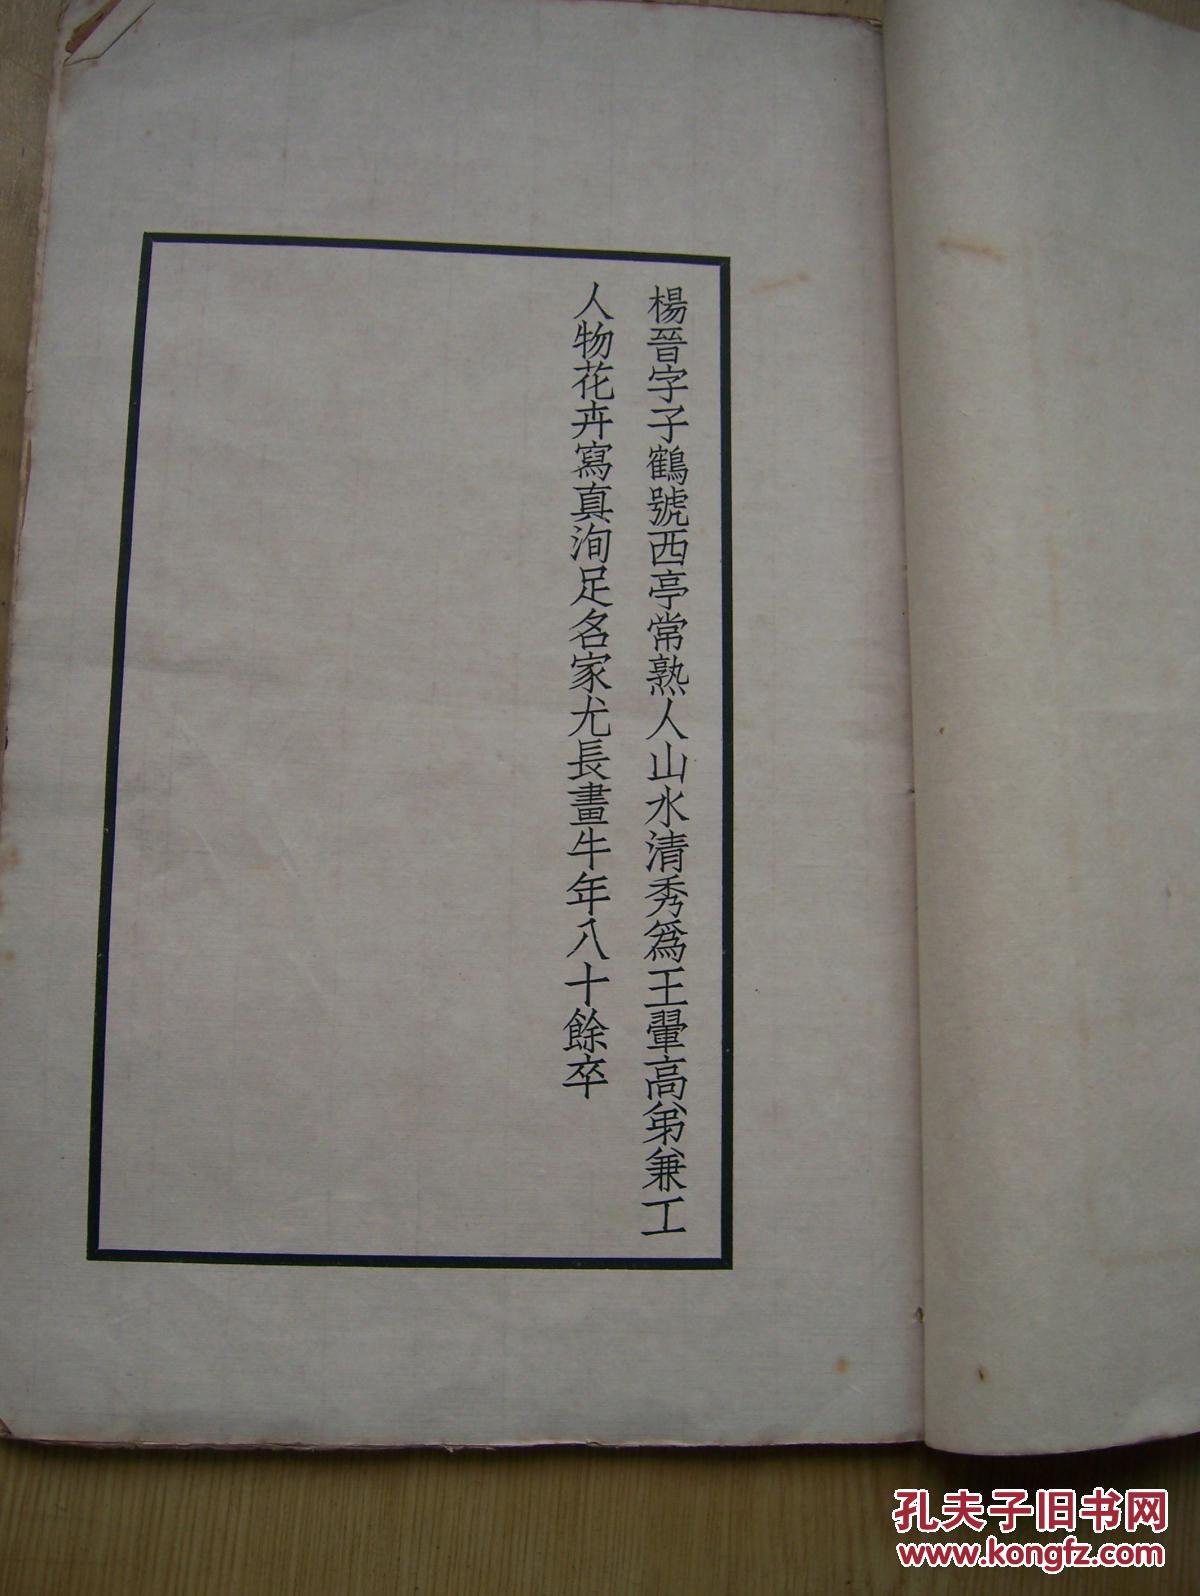 楊晉字子鶴號西亭常熟人山水清秀爲王翬高弟兼工
人物花卉寫真洵足名家尤長畫牛年八十餘卒
孔夫子旧书网
www.kongfz.com